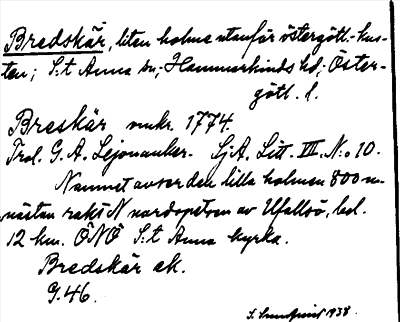 Bredskär, liten holme utanför östergötl.-kus-
ten; S:t Anna sn, Hammarkinds hd, Öster-
götl. l.
Breskär mkr. 1774.
Trol. G. A. Lejonanker. SjA, Litt. III. N:o 10.
Namnet avser den lilla holmen 800 m.
nästan rakt N nordspetsen av Ufallsö, bel.
12 km. ÖNÖ S:t Anna kyrka.
Bredskär ek.
G.46.
1938.